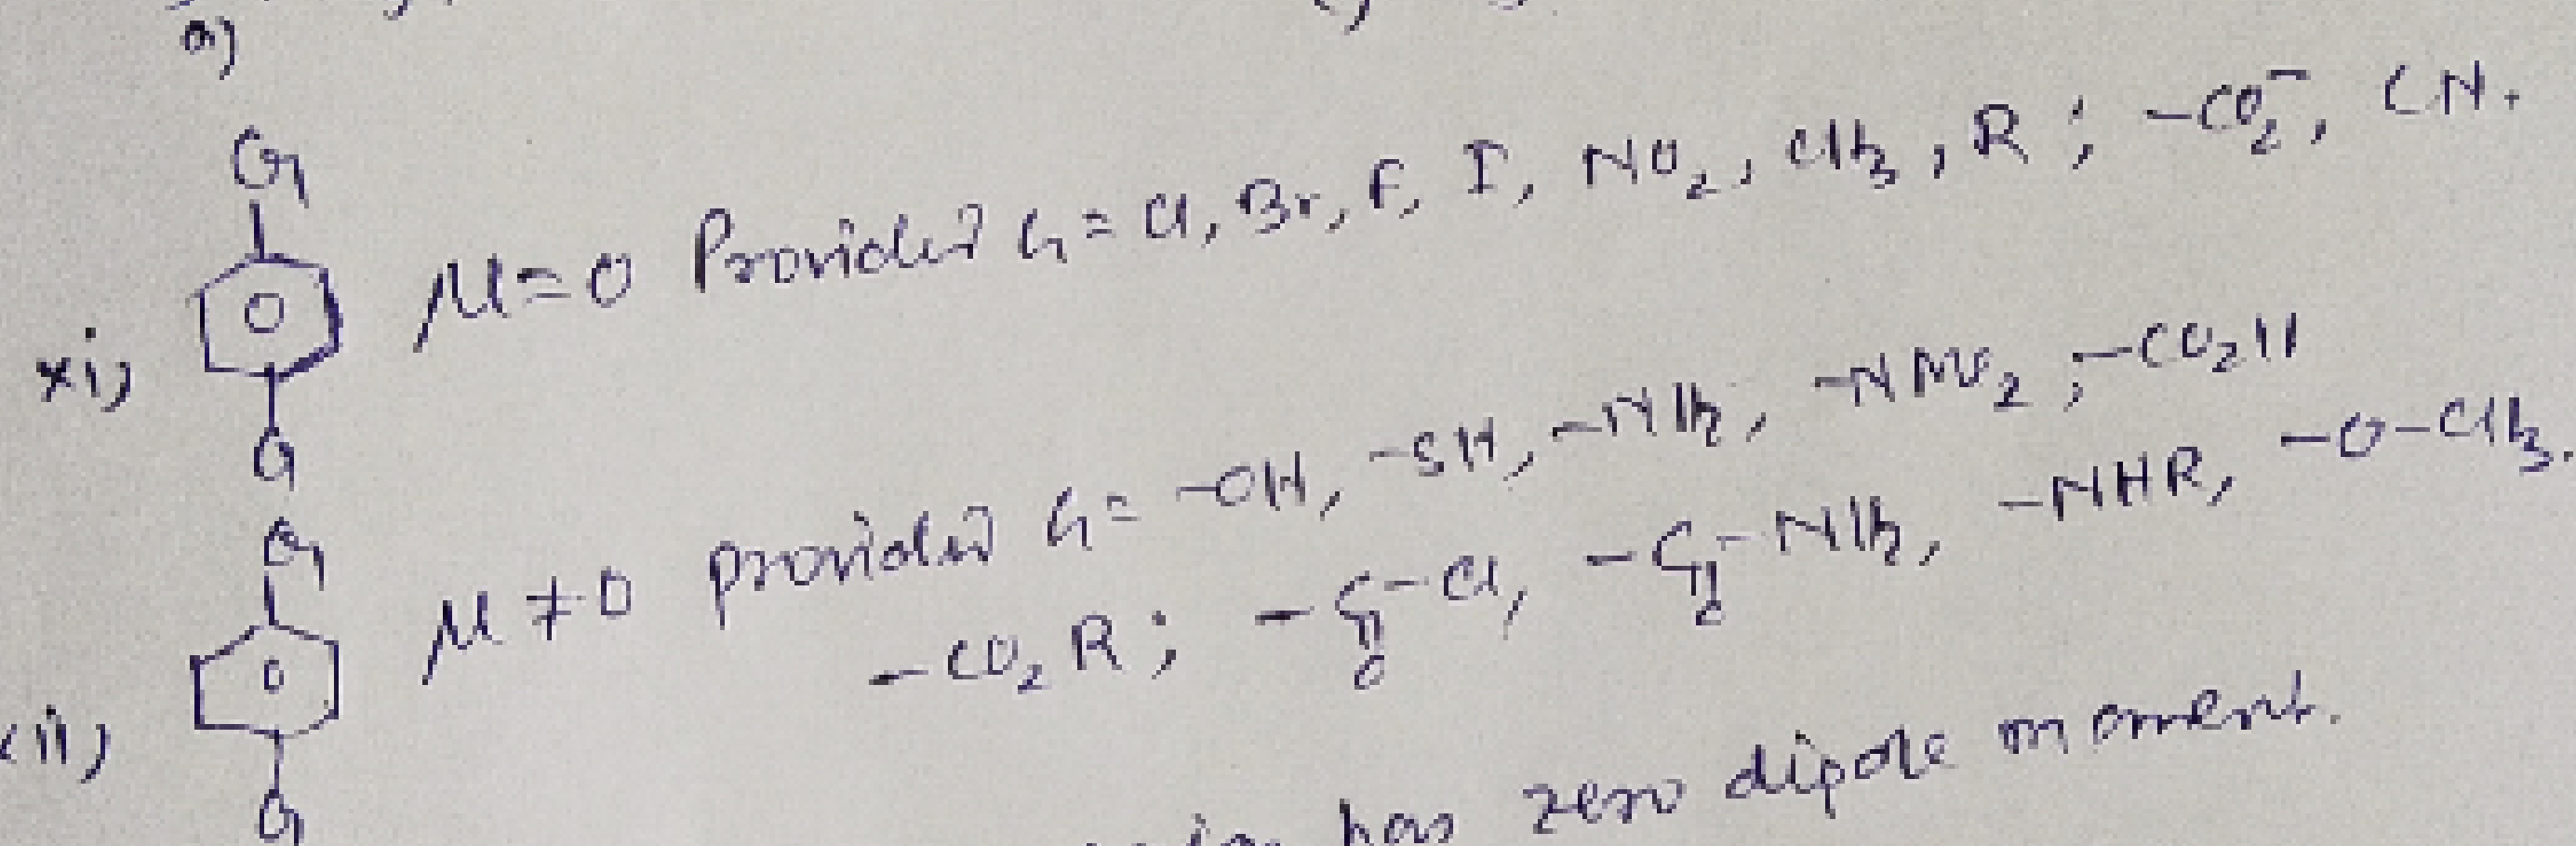 a)
G
xi) μ=0 Provided G = Cl, Br, F, I, NO₂, CH₃, R ; -CO₂⁻, CN.
G
G
xii) μ≠0 provided G = -OH, -SH, -NH₂, -NMe₂ ; -CO₂H
-CO₂R ; -C(=O)-Cl, -C(=O)-NH₂, -NHR, -O-CH₃.
G
has zero dipole moment.